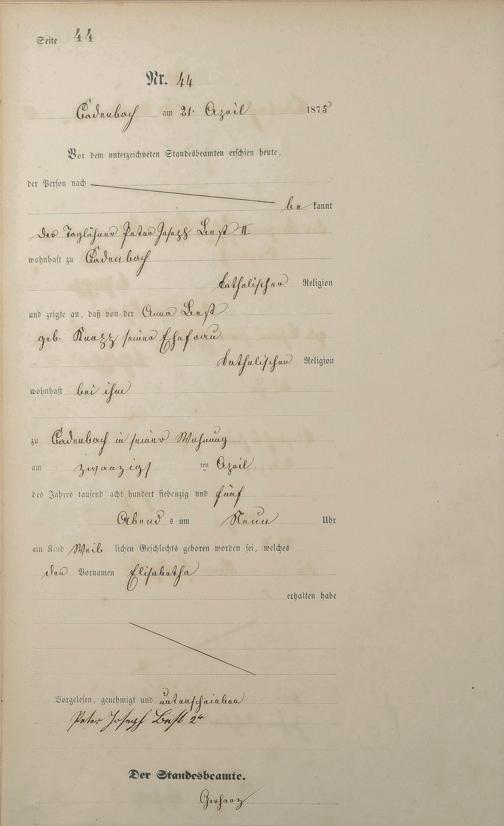 Seite 44
Nr. 44
Cadenbach am 21. April 1875
Vor dem unterzeichneten Standesbeamten erschien heute,
der Person nach
be kannt
der Taglöhner Peter Joseph Best II
wohnhaft zu Cadenbach
katholischer Religion
und zeigte an, daß von der Anna Best
geb. Knapp seiner Ehefrau
katholischer Religion
wohnhaft bei ihm
zu Cadenbach in seiner Wohnung
am zwanzigs ten April
des Jahres tausend acht hundert siebenzig und fünf
Abend s um Neun Uhr
ein Kind Weib lichen Geschlechts geboren worden sei, welches
den Vornamen Elisabetha
erhalten habe
Vorgelesen, genehmigt und unterschrieben
Peter Joseph Best 2r
Der Standesbeamte.
Gerharz